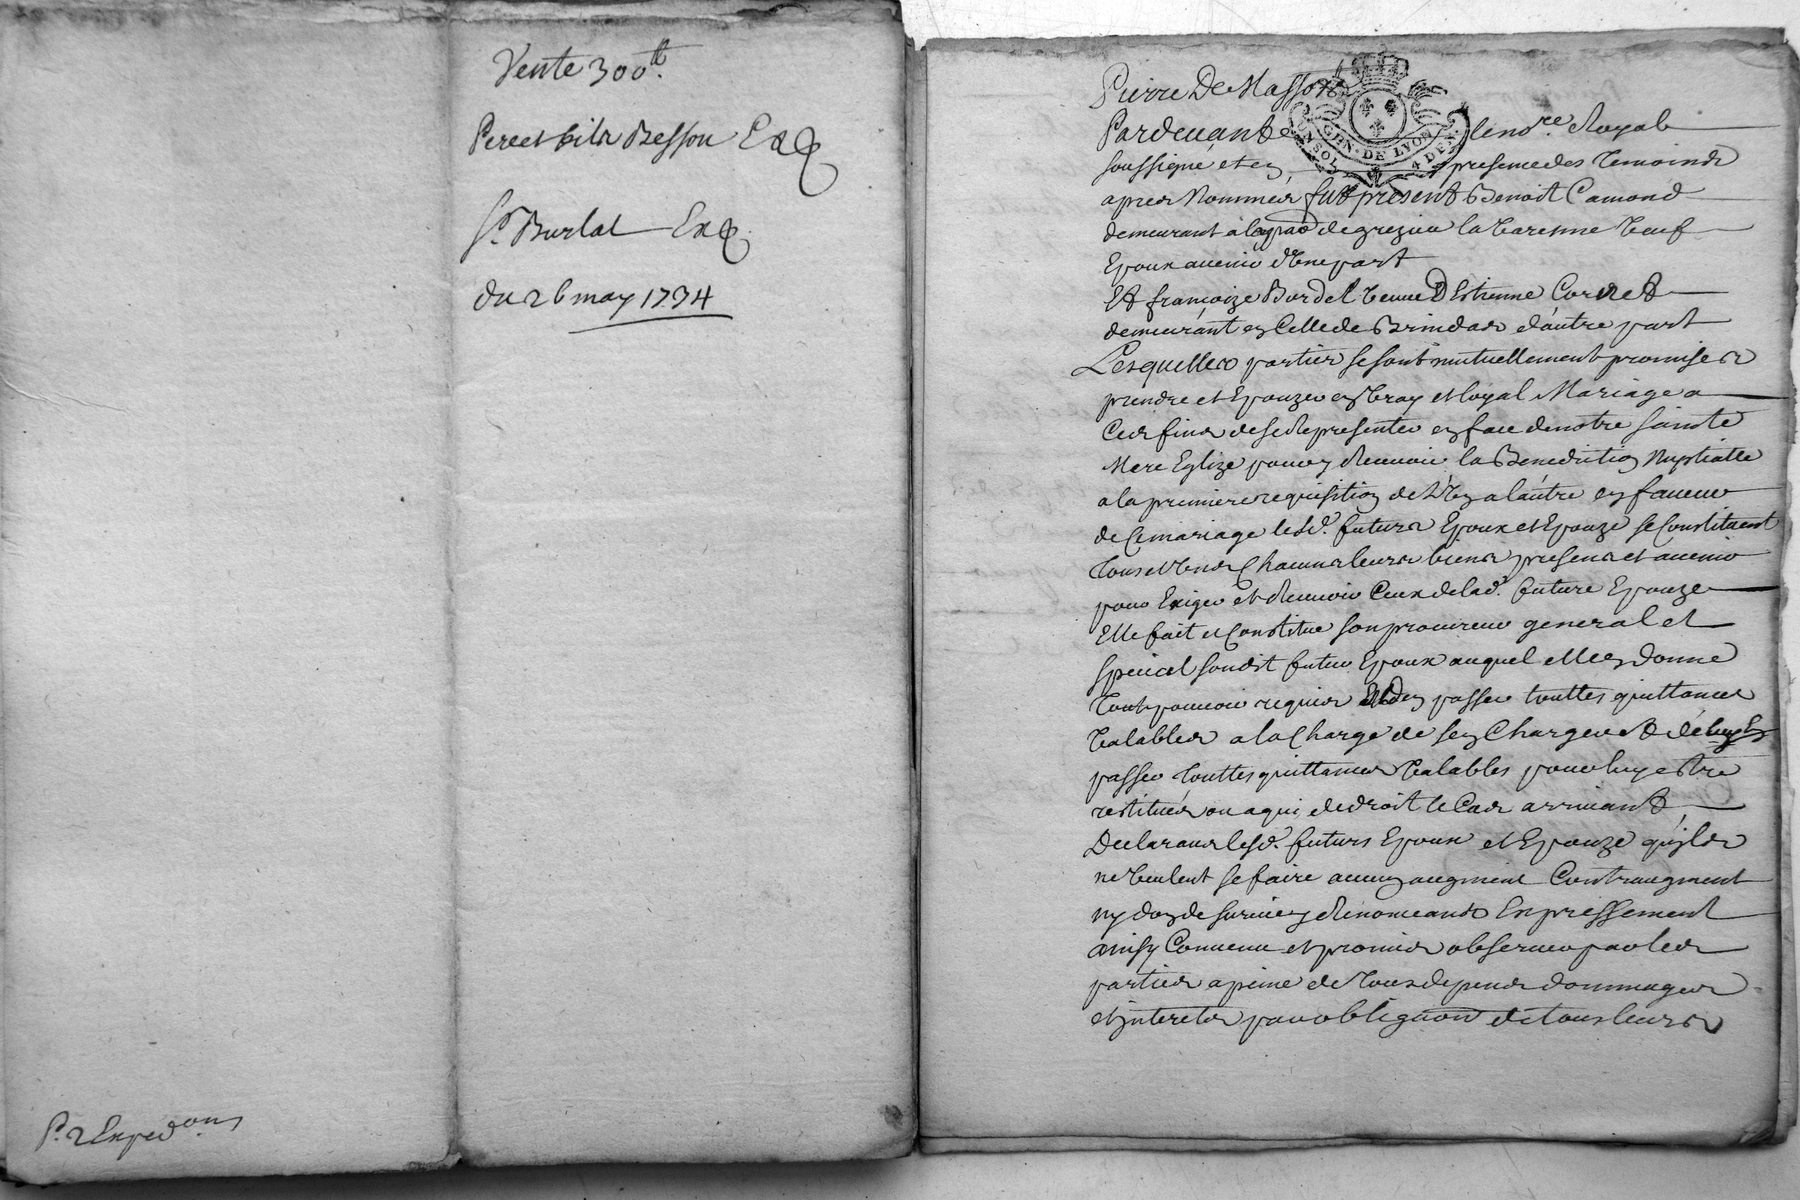 Vente 300 lt.
Pere et fils Besson Exq
Sr. Burlat Exq
du 26 may 1734
Pr. 2 Expedons
Pierre De Masson
Pardevant le nore. Royal
GEN. DE LYON
soussigné et en presence des temoins
apres Nommés fut present Benoit Camond
demeurant à la de grezieu la Varenne Veuf
Epoux avenir d'Une part
Et françoize Burdel Veuve D'Estienne Cornet
demeurant en Celle de Brindas d'autre part
Lesquelles parties se sont mutuellement promises
prendre et Epouzer en Vray et loyal Mariage a
Ces fins de se Representer en face de notre sainte
Mere Eglize pour y Recevoir la Benediction Nuptialle
a la premiere requisition de L'Un a l'autre en faveur
de Ce mariage lesd. futurs Epoux et Epouze se Constituent
tous et Uns Chacuns leurs biens presens et avenir
pour Exiger et Recevoir Ceux de lad. future Epouze
Elle fait et Constitue son procureur general et
special sondit futur Epoux auquel elle en donne
tout pouvoir requis d'en passer touttes quittances
Valables a la Charge de s'en Charger Et
passer touttes quittances Valables pour luy estre
restitués ou a qui de droit le Cas arrivant
Declarant lesd. futurs Epoux et Epouze qu'ils
ne Veulent se faire aucun augment Contraugment
ny don de survie y Renonceants Expressement
ainsy Convenu et promis observer par les
parties a peine de tous depens dommages
et interets par obligaon de tous leurs